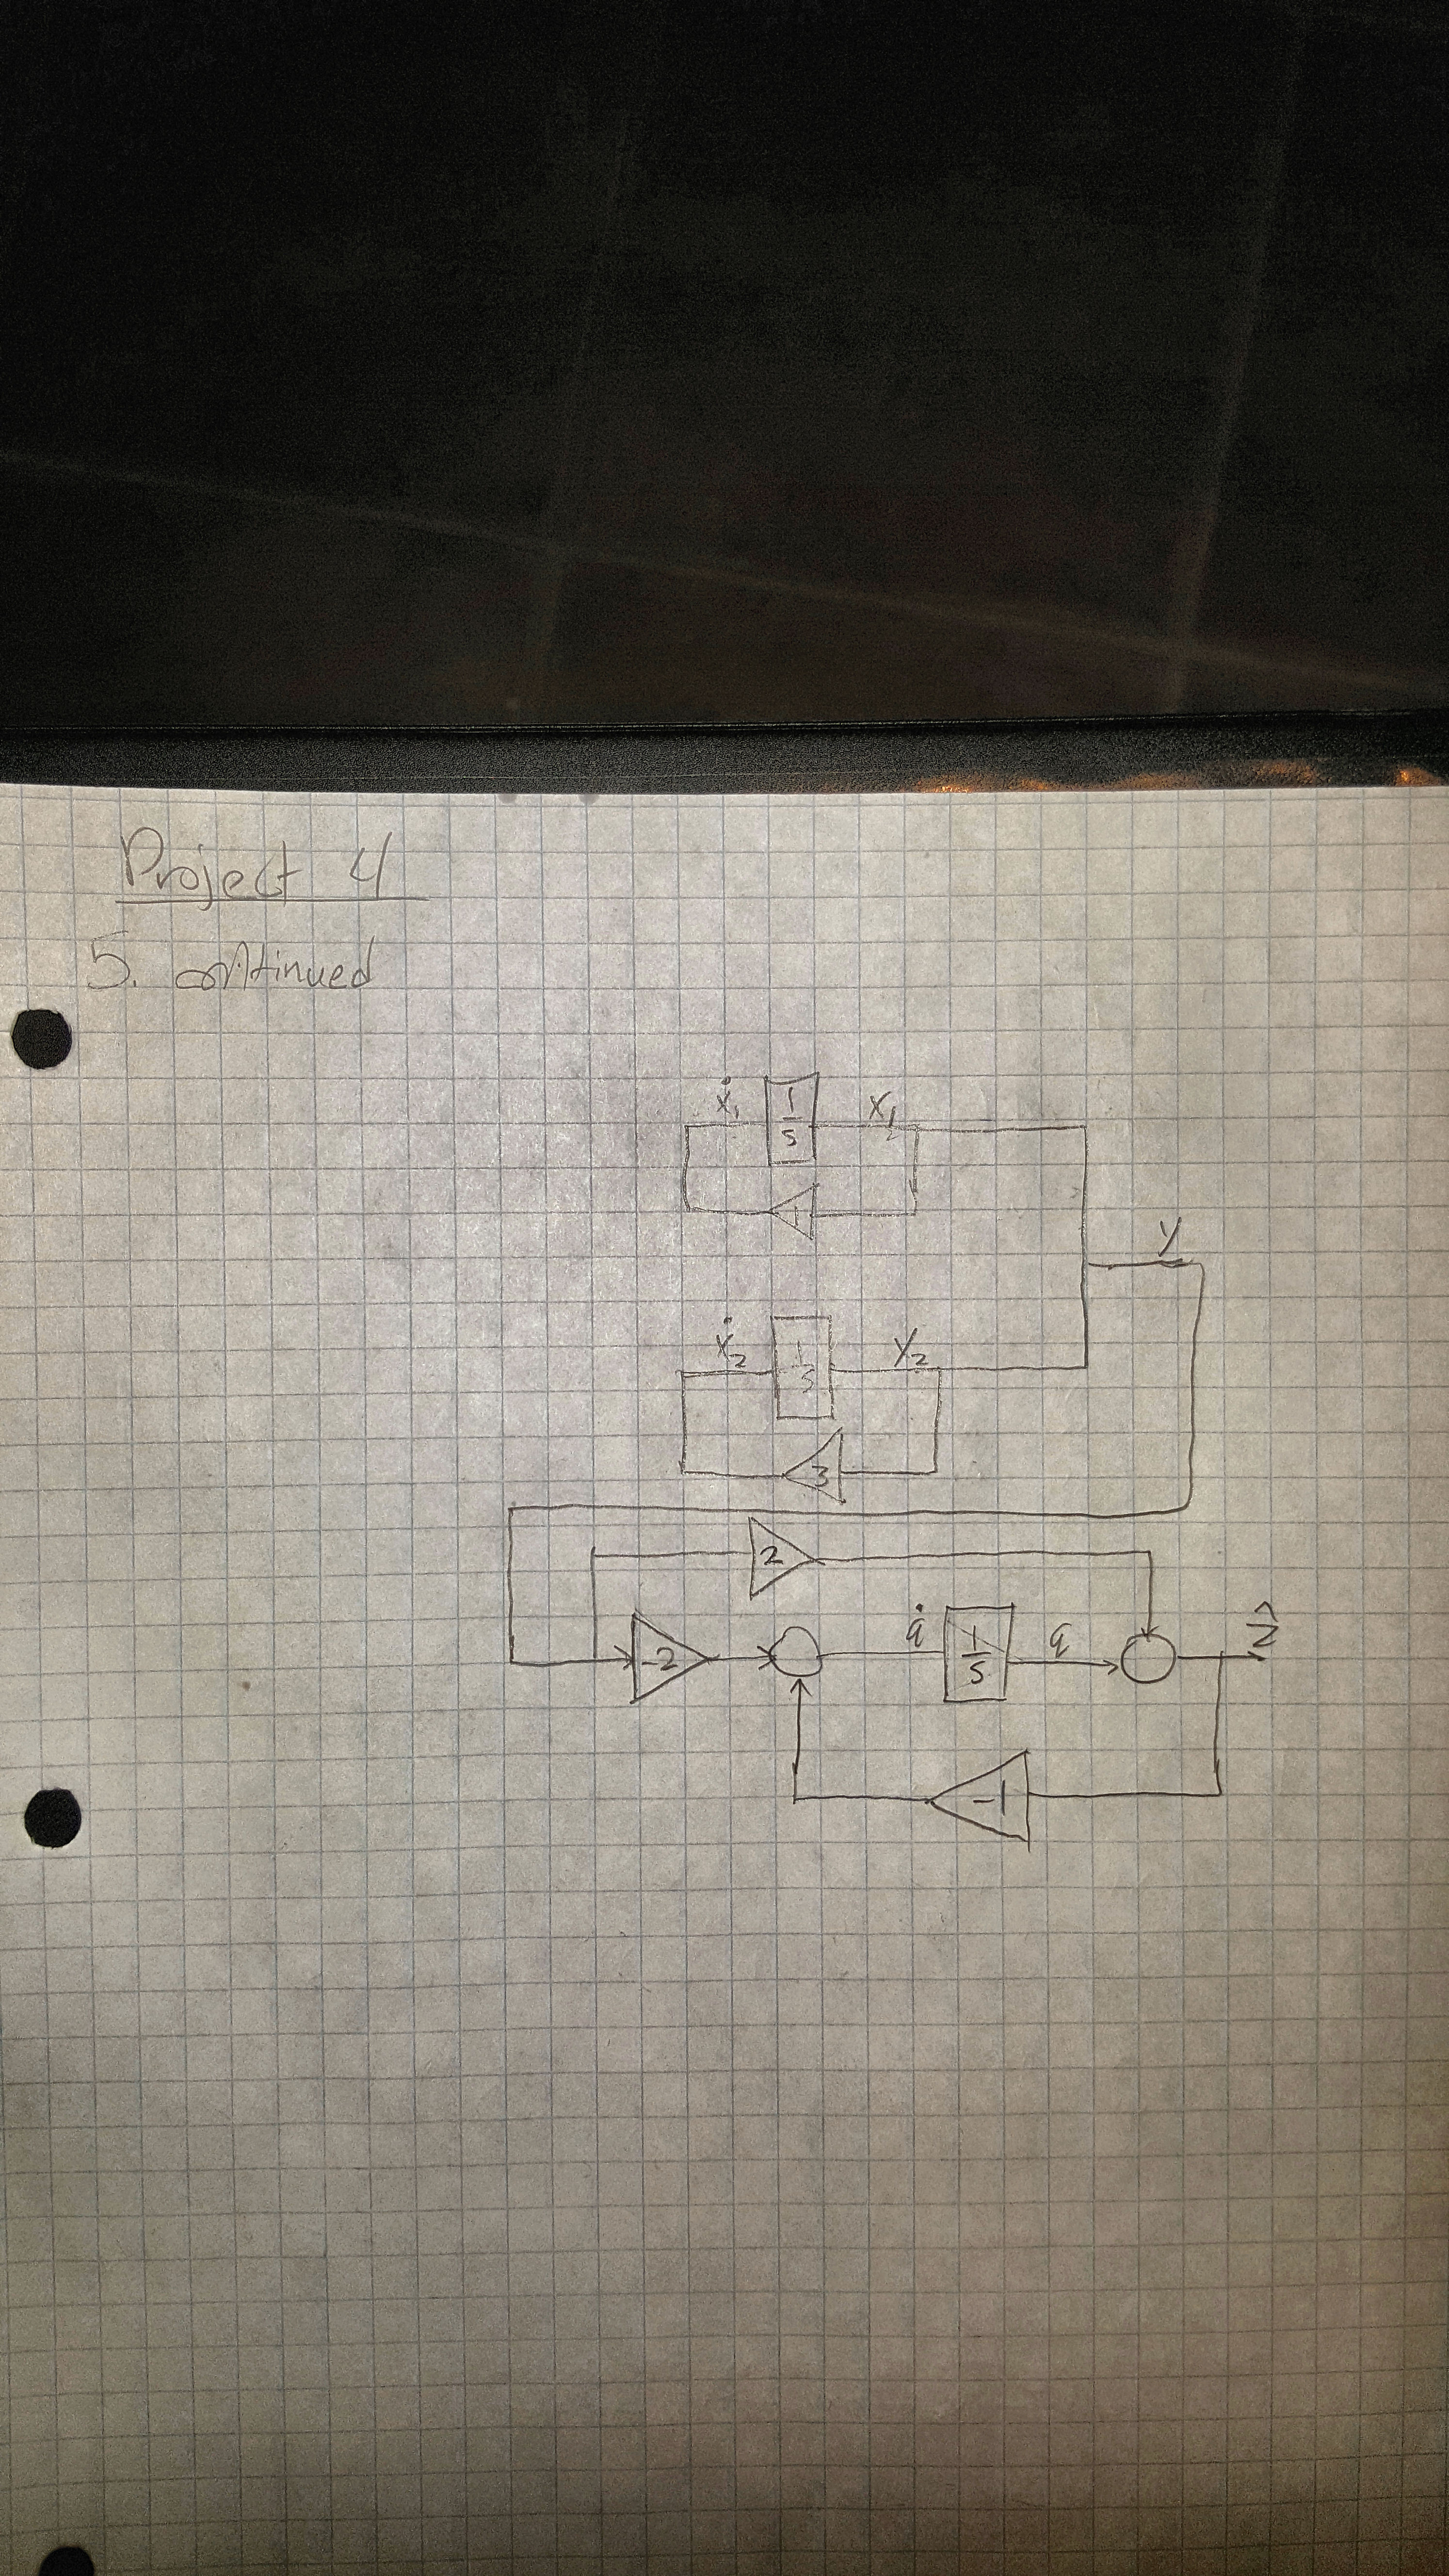 Project 4
5. continued
ẋ₁
1/s
x₁
1
ẋ₂
1/s
x₂
3
y
2
-2
q̇
1/s
q
-1
ẑ